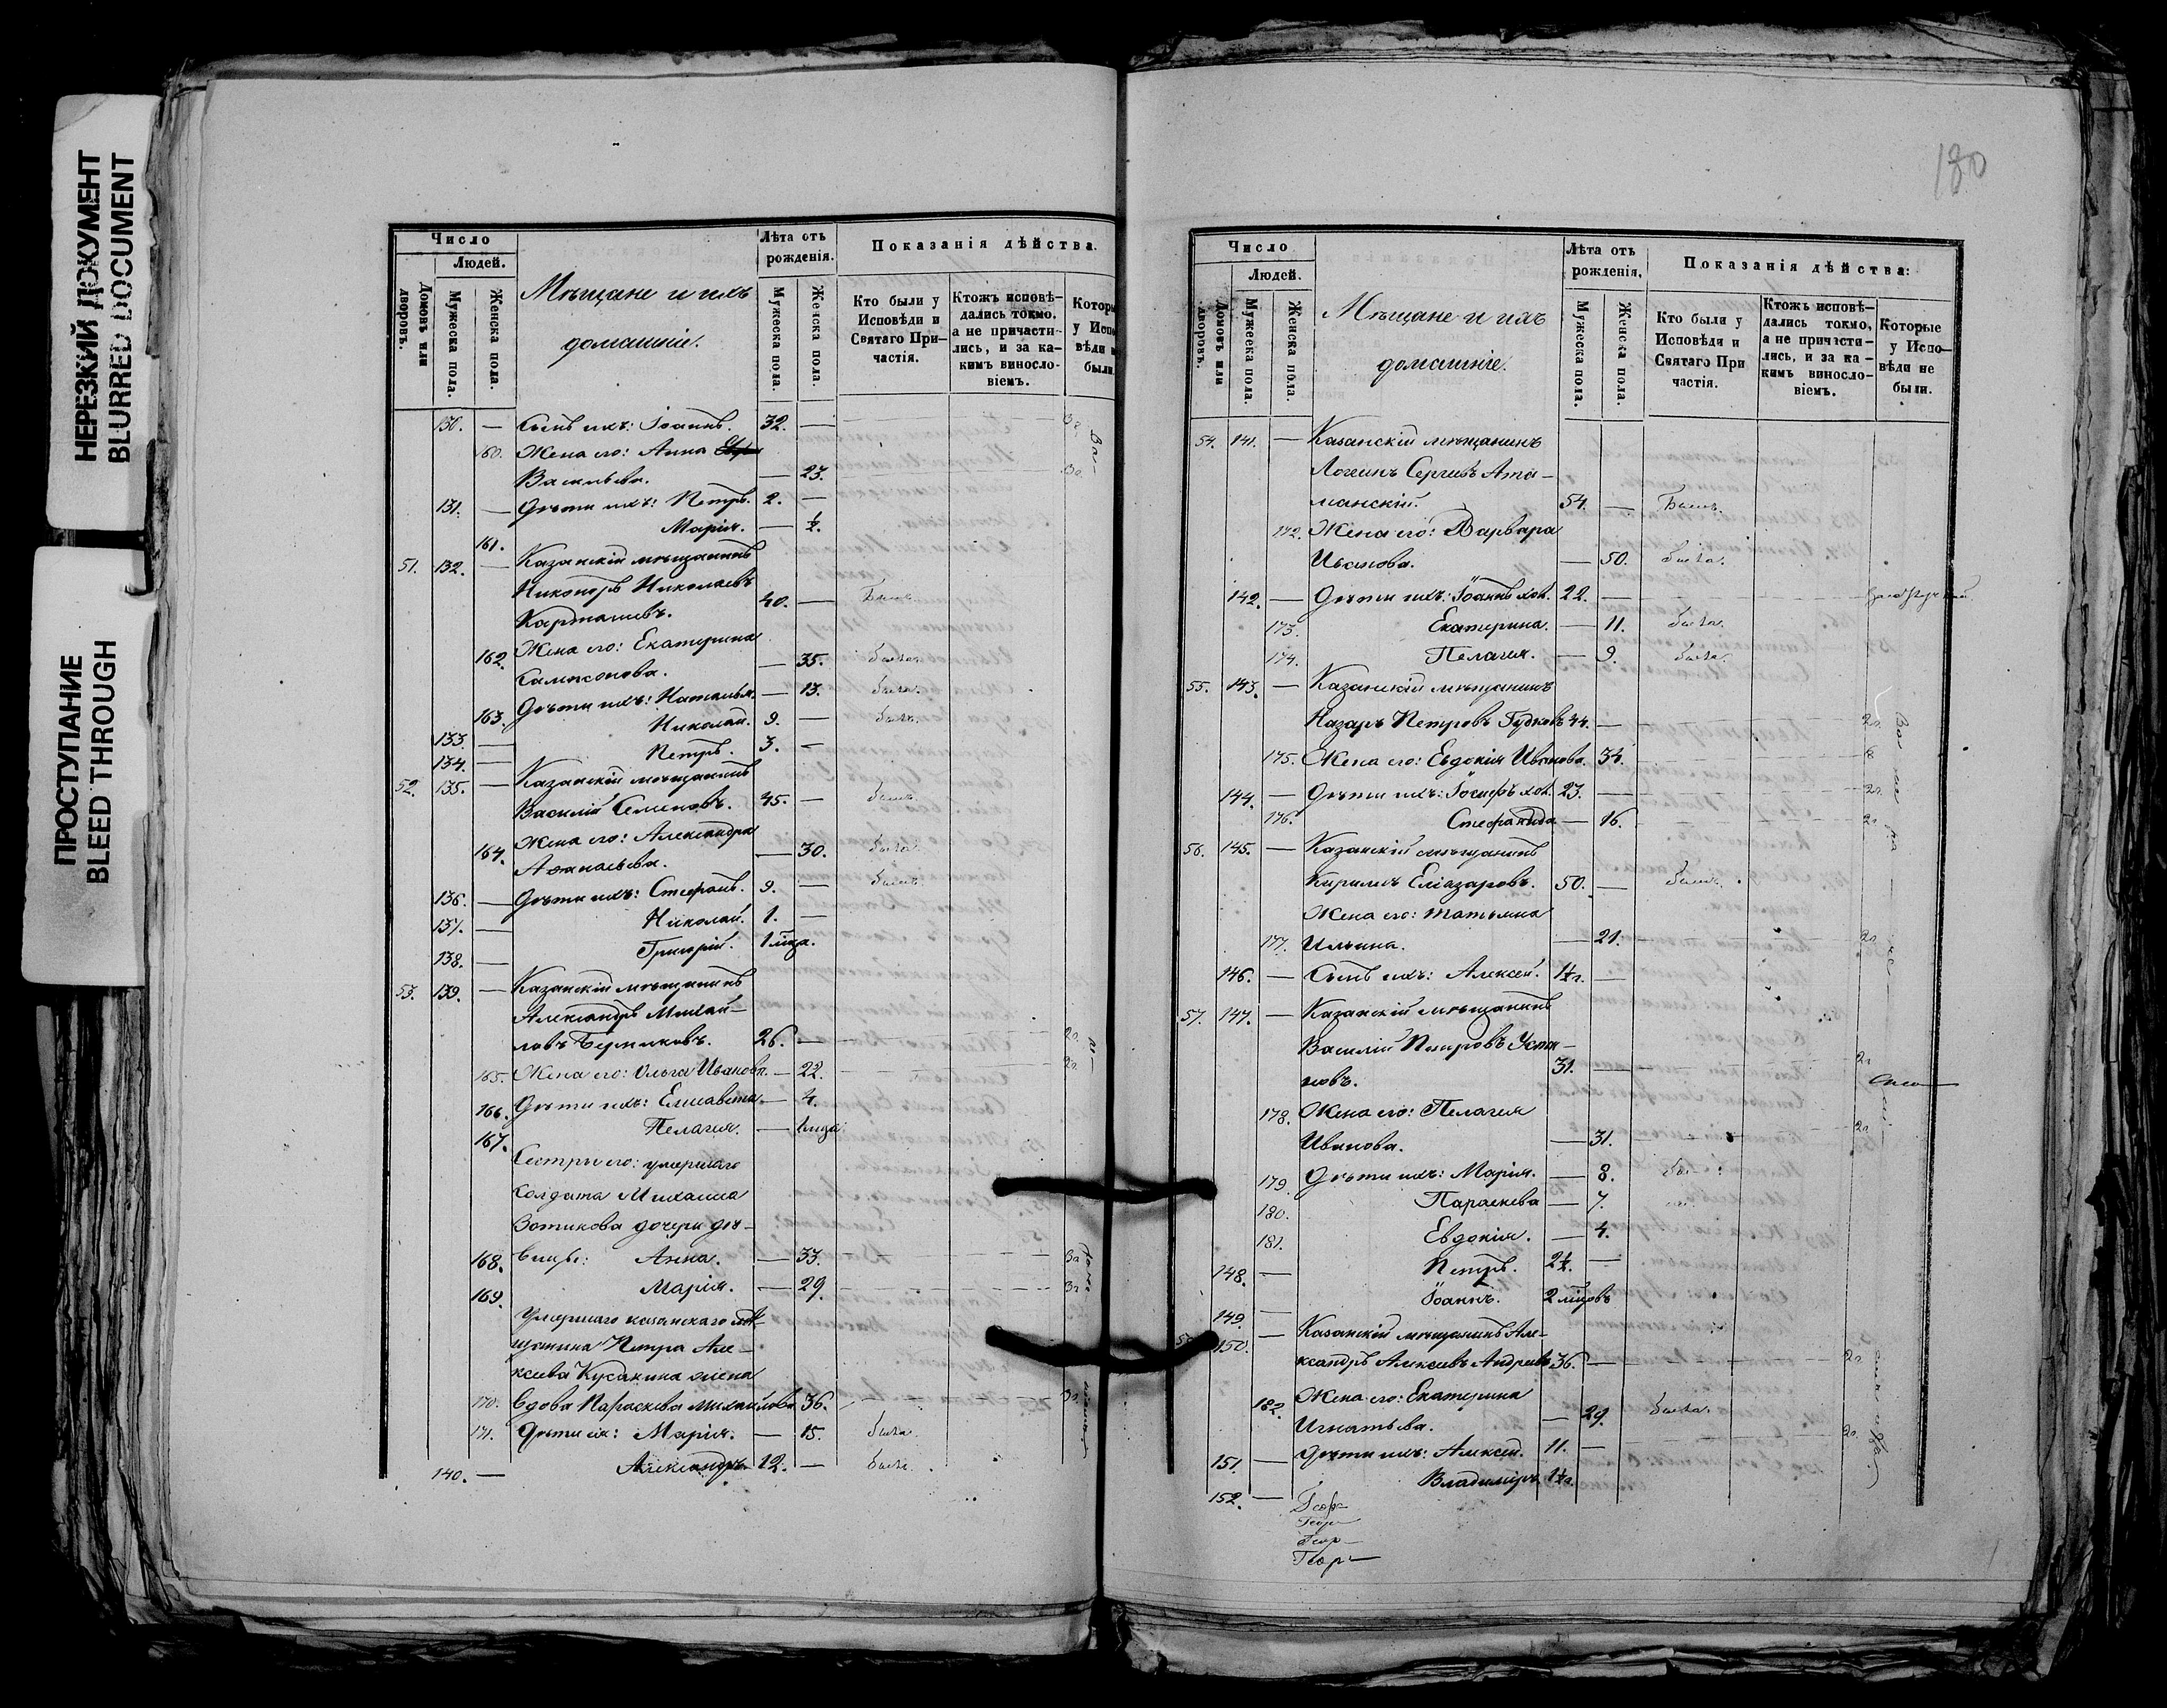 НЕРЕЗКИЙ ДОКУМЕНТ
BLURRED DOCUMENT
ПРОСТУПАНИЕ
BLEED THROUGH
Число
Людей.
Домовъ или дворовъ.
Мужеска пола.
Женска пола.
Мѣщане и ихъ
домашніе.
Лѣта отъ рожденія.
Мужеска пола.
Женска пола.
Показанія дѣйства.
Кто были у Исповѣди и Святаго При-частія.
Ктожъ исповѣ-дались токмо, а не причасти-лись, и за ка-кимъ винослο-віемъ.
130. — Сынъ ихъ: Іоаннъ. 32. —
160. Жена его: Анна
Васильева. — 23.
131. — Дѣти ихъ: Петръ. 2. —
161. Марія. — ½.
51. 132. — Казанскій мѣщанинъ
Никоноръ Николаевъ
40. — Былъ.
162. Жена его: Екатерина
Самсонова. — 35. была.
163. Дѣти ихъ: Наталья. — 13. была.
133. — Николай. 9. — былъ.
134. — Петръ. 3. —
52. 135. — Казанскій мѣщанинъ
Василій Семеновъ. 45. — былъ.
164. Жена его: Александра
Афанасьева. — 30. была.
136. — Дѣти ихъ: Стефанъ. 9. — былъ.
137. — Николай. 1. —
138. — Григорій. 1 мца.
53. 139. — Казанскій мѣщанинъ
Александръ Михай-
ловъ 26. —
165. Жена его: Ольга Иванова. — 22.
166. Дѣти ихъ: Елисавета. — 4.
167. Пелагея. — 1 мца
Сестры его: умершаго
солдата Михаила
Зотикова дочери дѣ-
168. вицы: Анна. — 33.
169. Марія. — 29.
Умершаго казанскаго мѣ-
щанина Петра Але-
ксѣева Кусакина жена
170. вдова Параскева Михайлова. 36.
171. Дѣти ея: Марія. — 15. была.
140. — Александръ. 12. — былъ.
180
Число
Людей.
Домовъ или дворовъ.
Мужеска пола.
Женска пола.
Мѣщане и ихъ
домашніе.
Лѣта отъ рожденія,
Мужеска пола.
Женска пола.
Показанія дѣйства:
Кто были у Исповѣди и Святаго При частія.
Ктожъ исповѣ-дались токмо, а не причасти-лись, и за ка-кимъ винослο-віемъ.
Которые у Испо-вѣди не были.
54. 141. — Казанскій мѣщанинъ
Логинъ Сергѣевъ Ата-
манскій. 54. — Былъ.
172. Жена его: Варвара
Иванова. — 50. была.
142. — Дѣти ихъ: Іоаннъ хол. 22. —
173. Екатерина. — 11. была.
174. Пелагея. — 9. была.
55. 143. — Казанскій мѣщанинъ
Назаръ Петровъ Гудковъ 44. —
175. Жена его: Евдокія Иванова. 34.
144. — Дѣти ихъ: Іосифъ хол. 23. —
176. Стефанида — 16.
56. 145. — Казанскій мѣщанинъ
Кирилъ Еліазаровъ. 50. — былъ.
Жена его: Татьяна
177. Ильина. — 21.
146. — Сынъ ихъ: Алексей. 1½ г. —
57. 147. — Казанскій мѣщанинъ
Василій Петровъ Усти-
новъ. 31. —
178. Жена его: Пелагея
Иванова. — 31.
179. Дѣти ихъ: Марія. — 8.
180. Параскева — 7.
181. Евдокія. — 4.
148. — Петръ. 2½. —
149. — Іоаннъ. 2 мцовъ
150. — Казанскій мѣщанинъ Але-
ксандръ Алексѣевъ Андреевъ 36. —
182. Жена его: Екатерина
Игнатьева. — 29. была.
151. — Дѣти ихъ: Алексей. 11. —
152. — Владиміръ 1½ г.
Геор
Геор
Геор
Геор